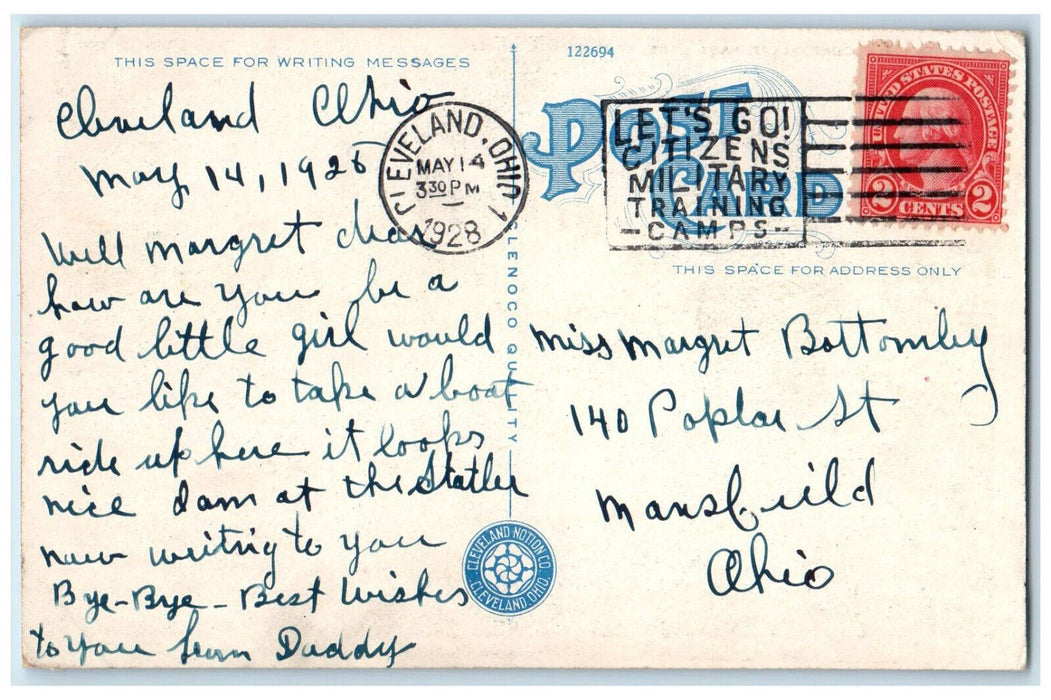 THIS SPACE FOR WRITING MESSAGES
Cleveland Ohio
May, 14, 1928
Will margret dear
how are you be a
good little girl would
you like to take a boat
ride up here it looks
nice dam at the Statler
now writig to you
Bye-Bye - Best Wishes
to you from Daddy
CLEVELAND, OHIO 1
MAY 14
330 PM
1928
CLENOCO QUALITY
CLEVELAND NOTION CO.
CLEVELAND, OHIO.
122694
POST
CARD
LET'S GO!
CITIZENS
MILITARY
TRAINING
- CAMPS -
UNITED STATES POSTAGE
2 CENTS 2
THIS SPACE FOR ADDRESS ONLY
Miss Margret Bottomley
140 Poplar St
Mansfield
Ohio